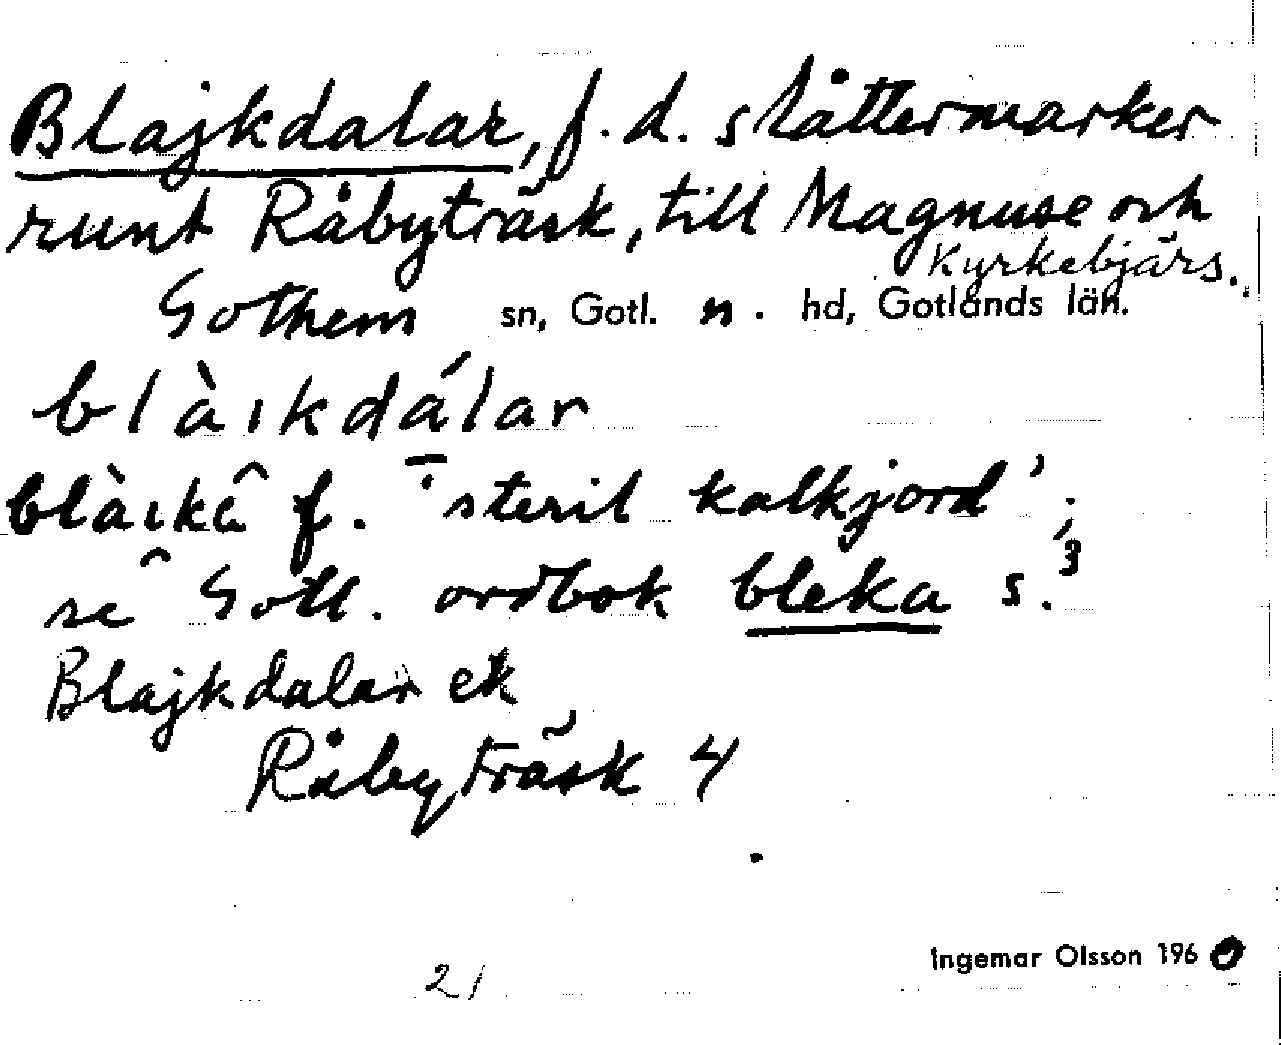 Blajkdalar, f.d. slåttermarker
runt Råbyträsk, till Magnuse och
Kyrkebjärs.
Gothem sn, Gotl. n. hd, Gotlands län.
blàıkdálar
blàıkâ f. 'steril kalkjord';
se Gotl. ordbok bleka s.³
Blajkdalar ek
Råbyträsk 4
21
Ingemar Olsson 1960